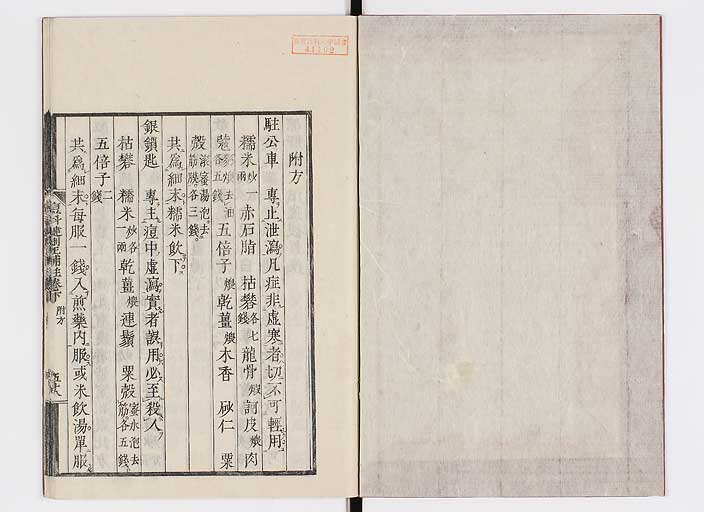 附方
駐公車　專止泄瀉凡症非虛寒者切不可輕用
糯米炒一兩赤石脂　枯礬各七錢龍骨煅訶皮煨肉
蔻煨去油各五錢五倍子煨乾薑煨木香　砂仁　粟
殼滾蜜湯泡去筋膜各三錢
共爲細末糯米飲下
銀鎖匙　專主痘中虛瀉實者誤用必至殺人
枯礬　糯米炒各一兩乾薑煨連鬚　粟殼蜜水泡去筋各五錢
五倍子二錢
共爲細末每服一錢入煎藥內服或米飲湯單服
痘科鍵刪正補註卷下　附方
五十八
41109